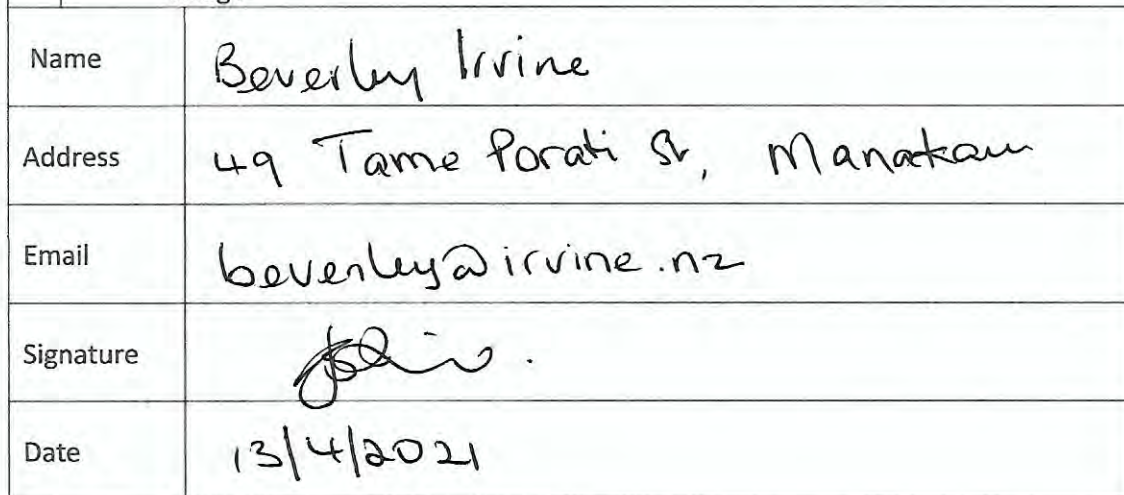 Name Beverley Irvine
Address 49 Tame Porati St, Manakau
Email beverley@irvine.nz
Signature
Date 13/4/2021